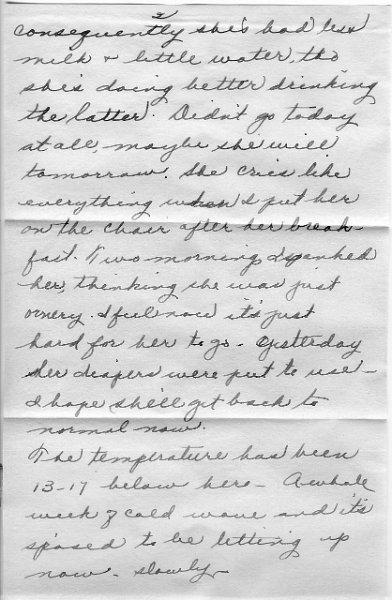 2
consequently she's had less
milk & little water, tho
she's doing better drinking
the latter. Didn't go today
at all, maybe she will
tomorrow. She cries like
everything when I put her
on the chair after her break-
fast. Two mornings I spanked
her, thinking she was just
ornery. I feel now it's just
hard for her to go. Yesterday
her diapers were put to use -
I hope she'll get back to
normal now.
The temperature has been
13-17 below here - A whole
week of cold wave and it's
s'posed to be letting up
now - slowly -